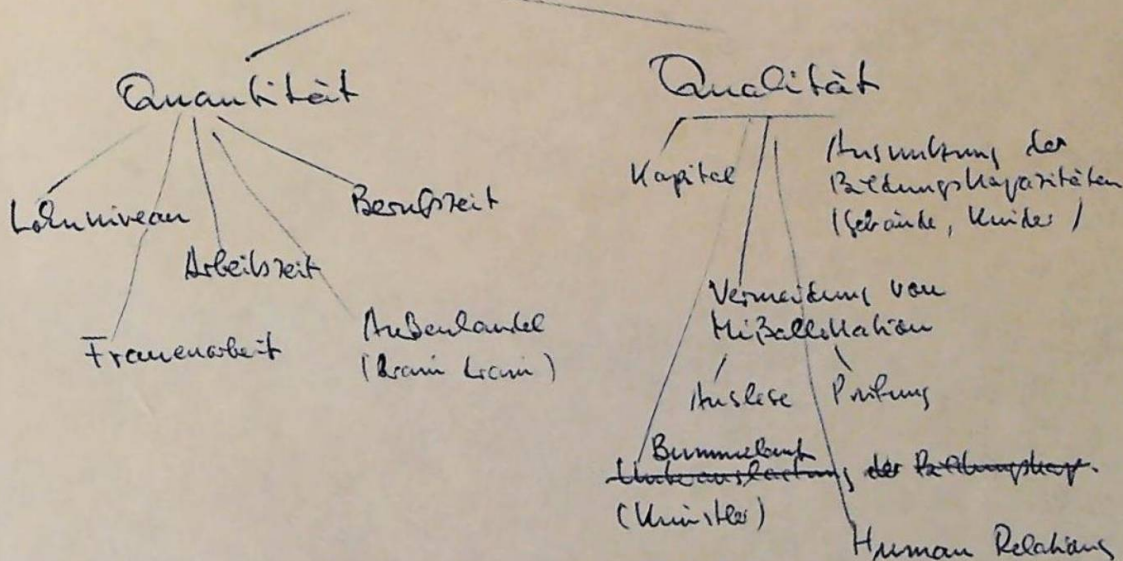 Quantität
Qualität
Lohnniveau
Frauenarbeit
Arbeitszeit
Berufszeit
Außenhandel
(Brain Drain)
Kapital
Ausnutzung der
Bildungskapazitäten
(Gebäude, Kinder)
Vermeidung von
Mißallokation
Auslese
Prüfung
Unterauslastung der Bildungskap.
(Künstler)
Human Relations